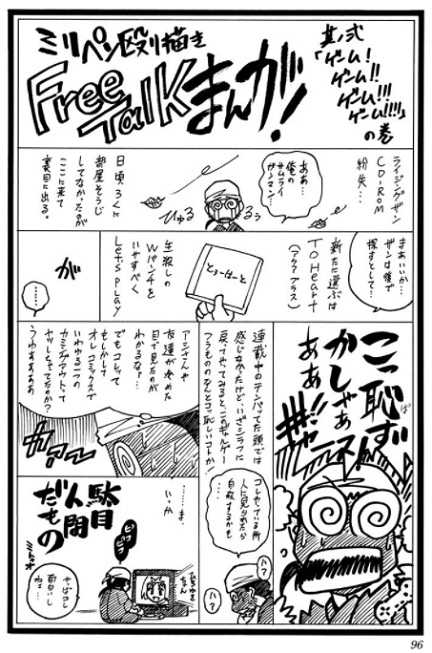 ミリペン殴り描き
Free
Talkまんが!
其ノ弐
「ゲーム!
ゲーム!!
ゲーム!!!
ゲーム!!!!」
の巻
ライジングザン
CD-ROM
紛失…
ああ…
俺の
サムライ
ガンマン…
ひゅる
るぅ
日頃ろくに
部屋そうじ
してなかったのが
ここに来て
裏目に出る。
まあいいか…
ザンは後で
探すとして…
新たに選ぶは
To Heart
(アクアプラス)
とぅーはーと
生殺しの
Wパンチを
いやすべく
Let's play
が
……。
こっ恥ず
かしゃあ
ああ
連載中のテンパッてた頭では
感じなかったけど、いざシラフに
戻ってやってみると、このギャルゲー
つうもののなんとこっ恥しいコトか
アシさんや
友達が冷めた
目で見たのが
わかるな…
でもコレって
もしかして
オレコミックスで
いわゆる一つの
カミングアウトって
ヤツしちゃってたか?
うわすああああ
カアア〜
コレやっている所
人に見られたら
自殺するかも
…
ハァ?
ハァ?
……ま、
いっか
やっぱコレ
面白いし
ねェ…
駄目
人間
だもの
みとを
96